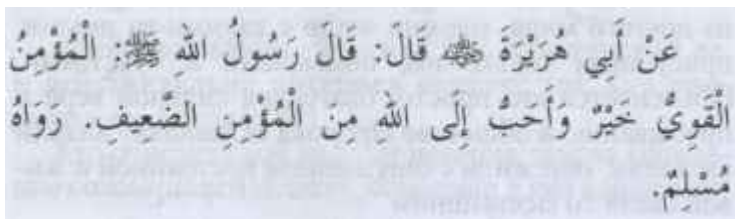 عَنْ أَبِي هُرَيْرَةَ ﷺ قَالَ: قَالَ رَسُولُ اللهِ ﷺ: الْمُؤْمِنُ
الْقَوِيُّ خَيْرٌ وَأَحَبُّ إِلَى اللهِ مِنَ الْمُؤْمِنِ الضَّعِيفِ. رَوَاهُ
مُسْلِمٌ.